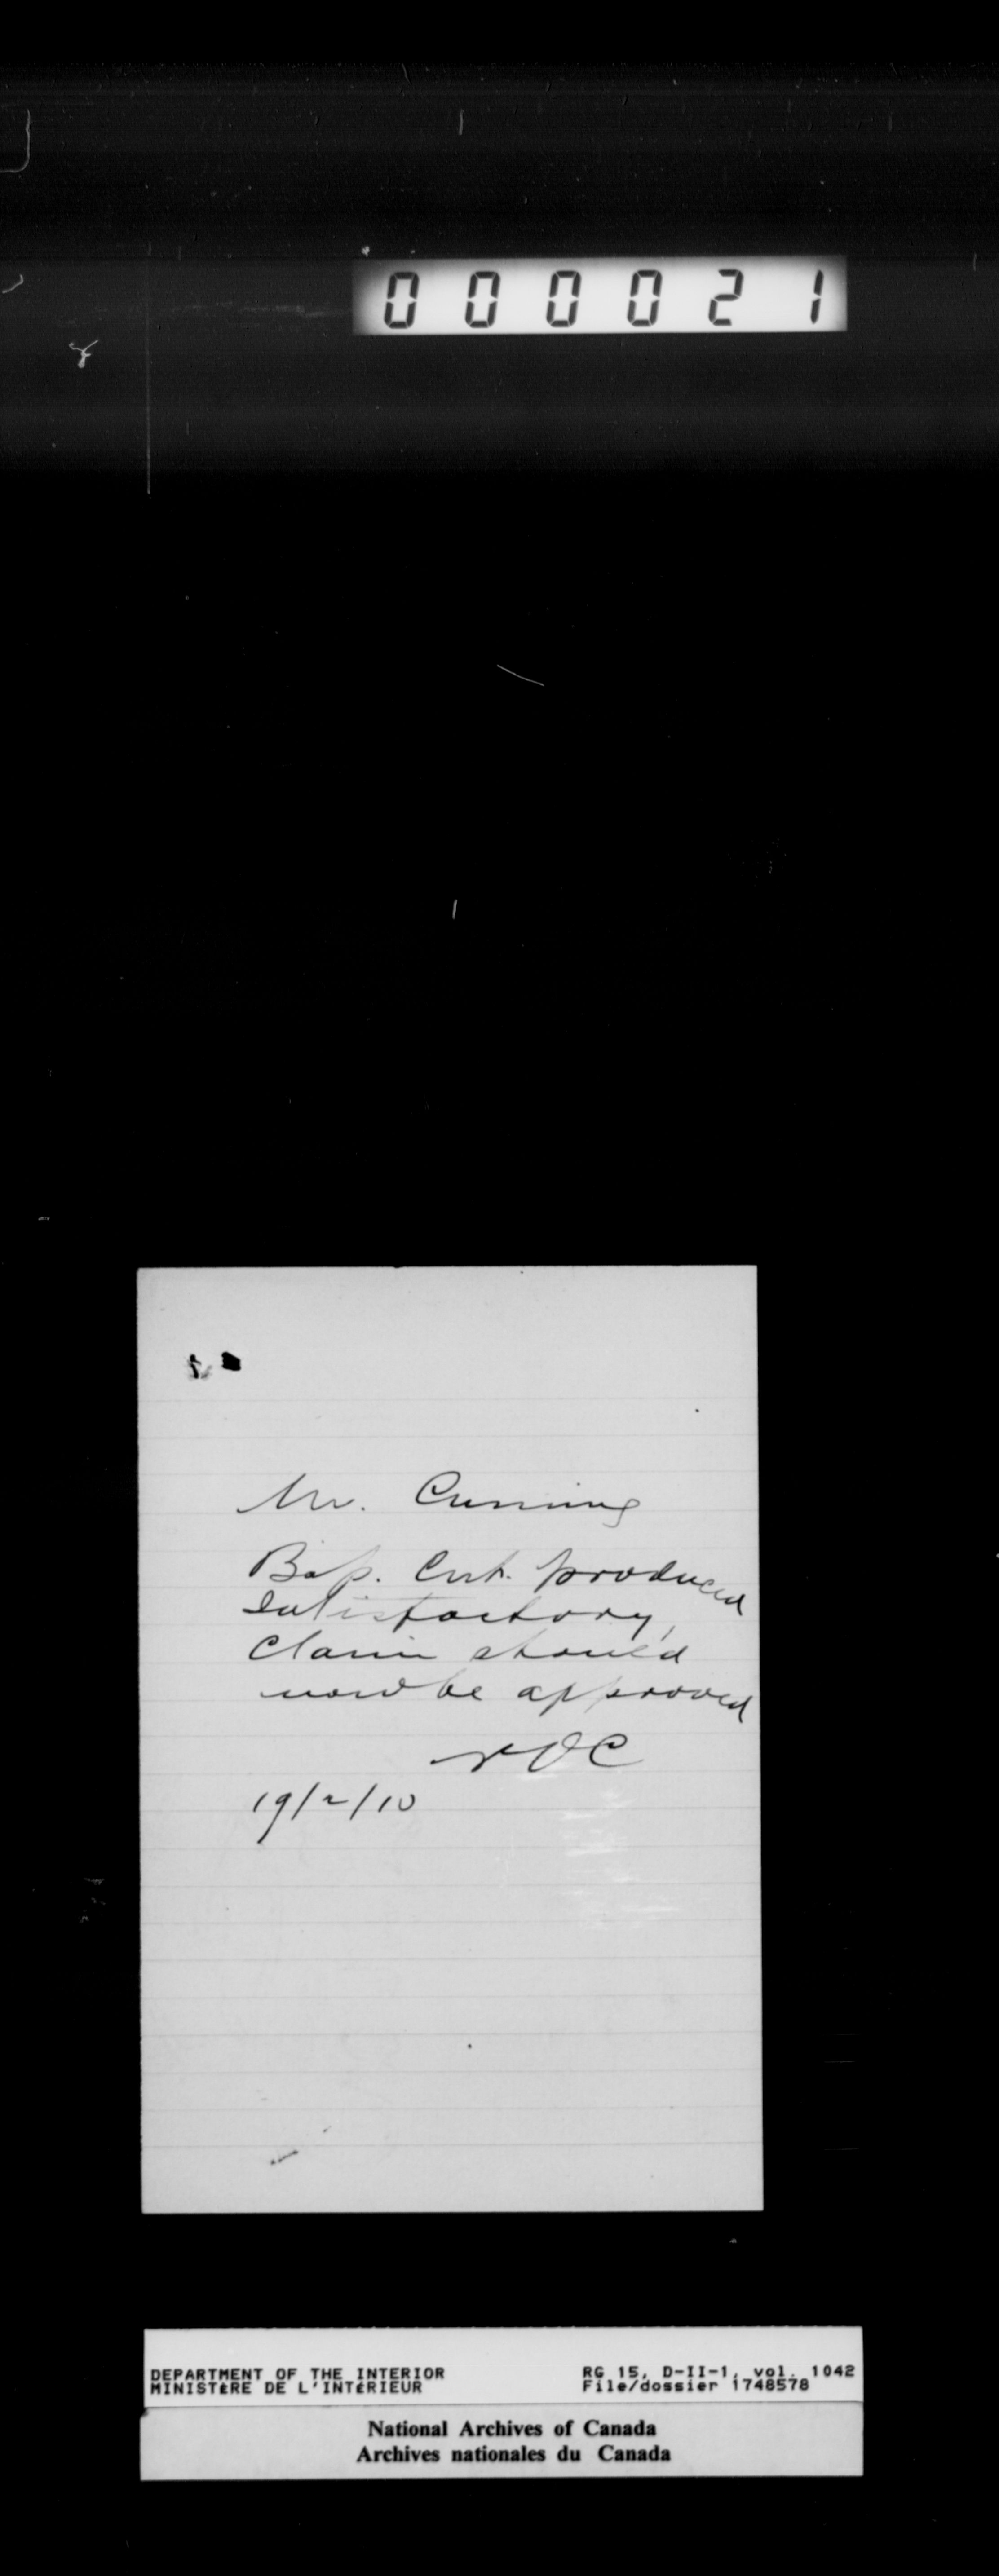 000021
Mr. Cuming
Bap. Cert. produced
Satisfactory,
Claim should
now be approved
NOC
19/2/10
DEPARTMENT OF THE INTERIOR
MINISTÈRE DE L'INTÉRIEUR
RG 15, D-II-1, vol. 1042
File/dossier 1748578
National Archives of Canada
Archives nationales du Canada